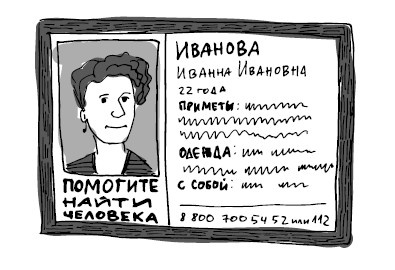 ИВАНОВА
ИВАННА ИВАНОВНА
22 ГОДА
ПРИМЕТЫ:
ОДЕЖДА:
С СОБОЙ:
ПОМОГИТЕ
НАЙТИ
ЧЕЛОВЕКА
8 800 700 54 52 или 112